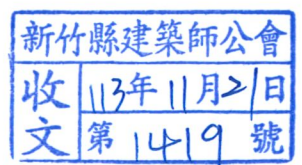 新竹縣建築師公會
收文
113年11月21日
第1419號